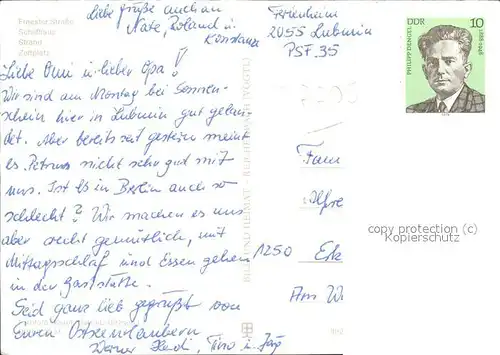 Liebe Grüße auch an
Nate, Roland u
Konstanze
Ferienheim
2055 Lubmin
PSF. 35
Freester Straße
Schiffbau
Strand
Zeltplatz
DDR 10
PHILIPP DENGEL
1888-1948
Liebe Omi u. lieber Opa!
Wir sind am Montag bei Sonnen-
schein hier in Lubmin gut gelan-
det. Aber bereits seit gestern meint
es Petrus nicht sehr gut mit
uns. Ist es in Berlin auch so
schlecht? Wir machen es uns
aber recht gemütlich, mit
Mittagsschlaf und Essen gehen
in der Gaststätte.
Seid ganz lieb gegrüßt von
Euren Ostseeurlaubern
Werner Tino u.
Fam
Alfre
1250 Erk
Am W
BILD UND HEIMAT REICHENBACH (VOGTL)
copy protection (c)
Kopierschutz